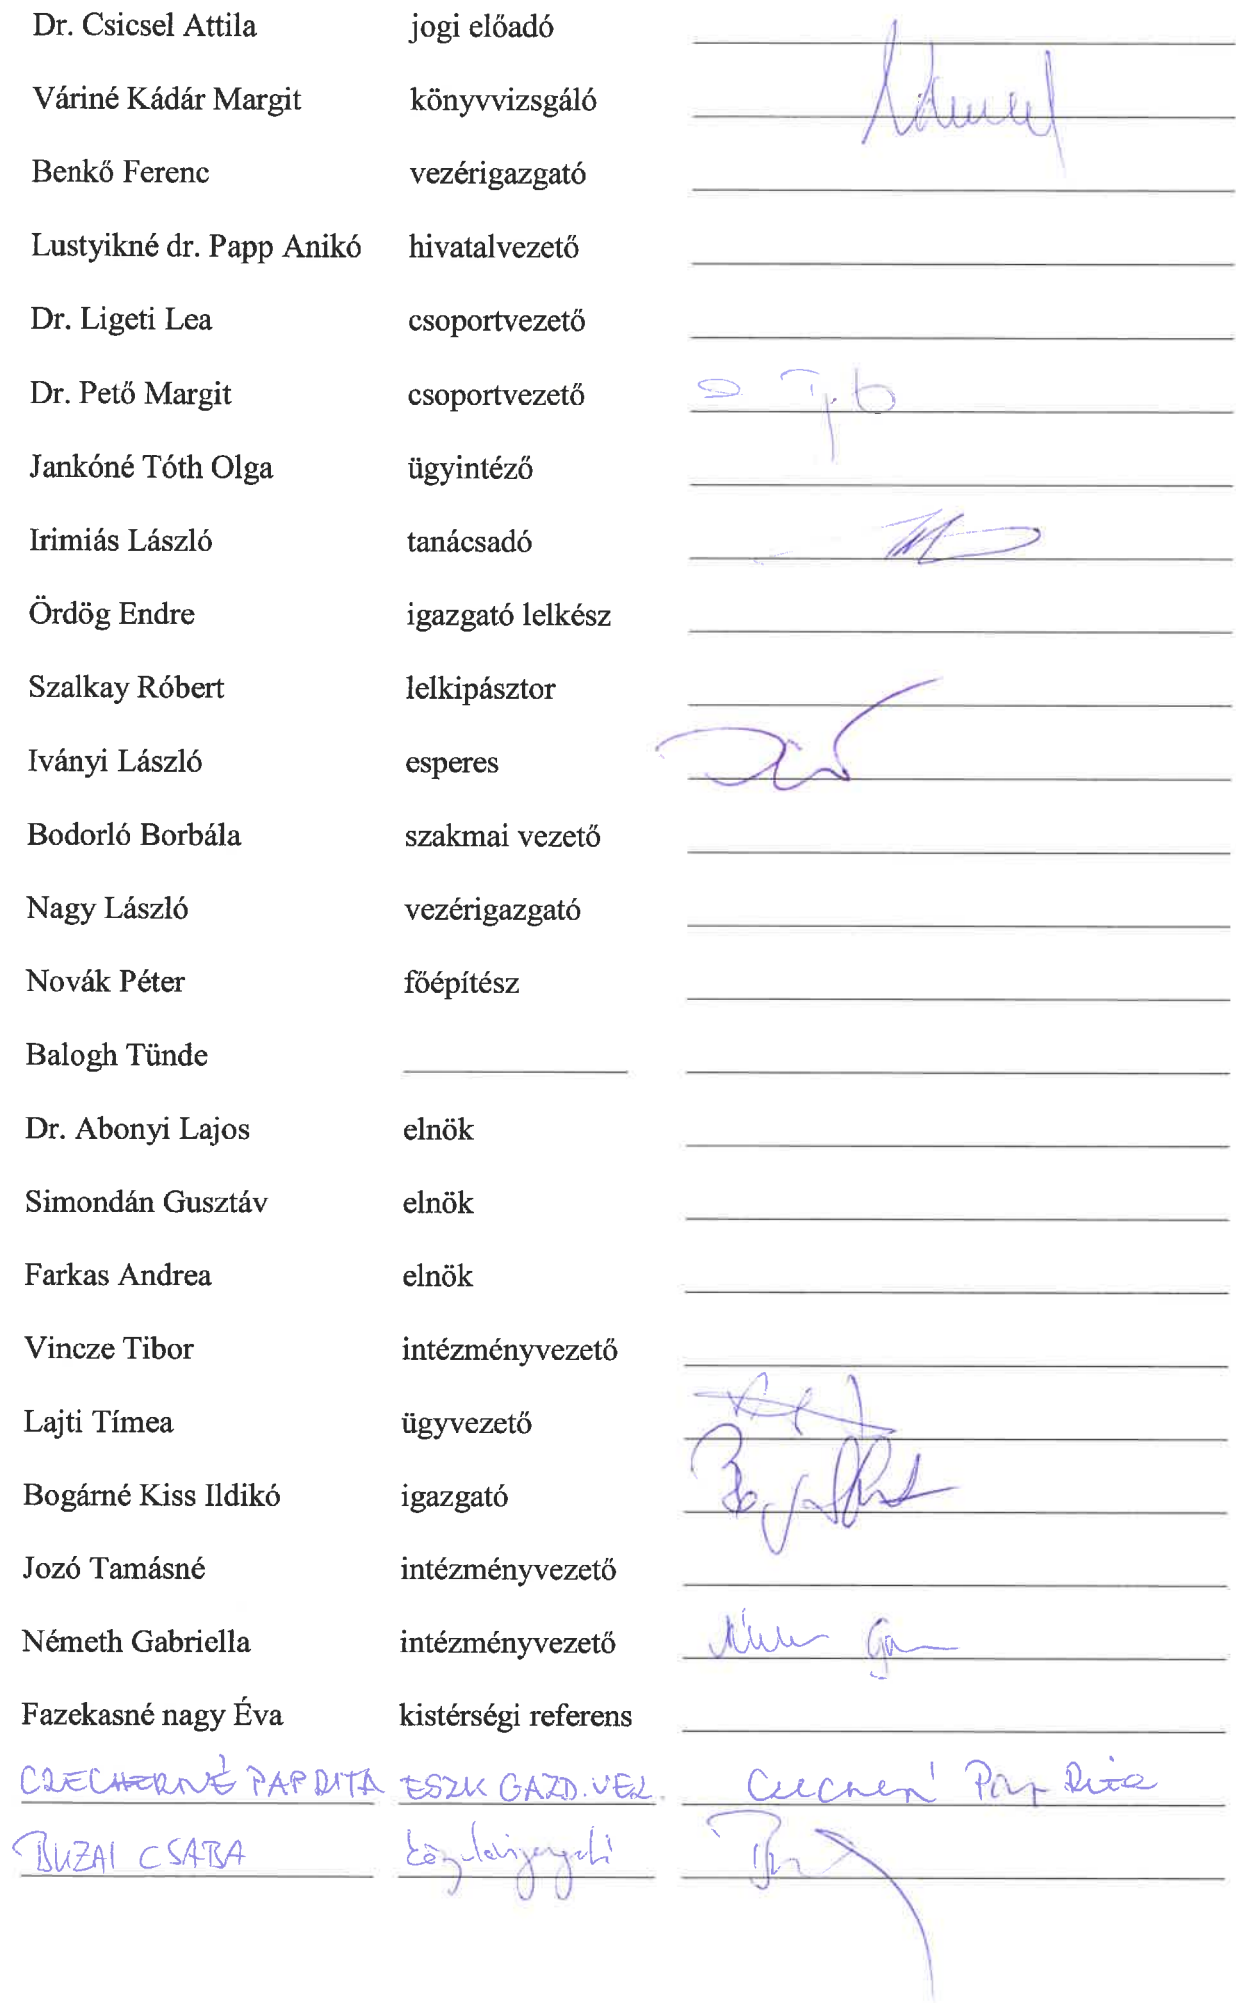 Dr. Csicsel Attila jogi előadó
Váriné Kádár Margit könyvvizsgáló
Benkő Ferenc vezérigazgató
Lustyikné dr. Papp Anikó hivatalvezető
Dr. Ligeti Lea csoportvezető
Dr. Pető Margit csoportvezető
Jankóné Tóth Olga ügyintéző
Irimiás László tanácsadó
Ördög Endre igazgató lelkész
Szalkay Róbert lelkipásztor
Iványi László esperes
Bodorló Borbála szakmai vezető
Nagy László vezérigazgató
Novák Péter főépítész
Balogh Tünde
Dr. Abonyi Lajos elnök
Simondán Gusztáv elnök
Farkas Andrea elnök
Vincze Tibor intézményvezető
Lajti Tímea ügyvezető
Bogárné Kiss Ildikó igazgató
Jozó Tamásné intézményvezető
Németh Gabriella intézményvezető
Fazekasné nagy Éva kistérségi referens
CZECHERNÉ PAP RITA ESZK GAZD. VEZ. Czecherné Pap Rita
BUZAI CSABA